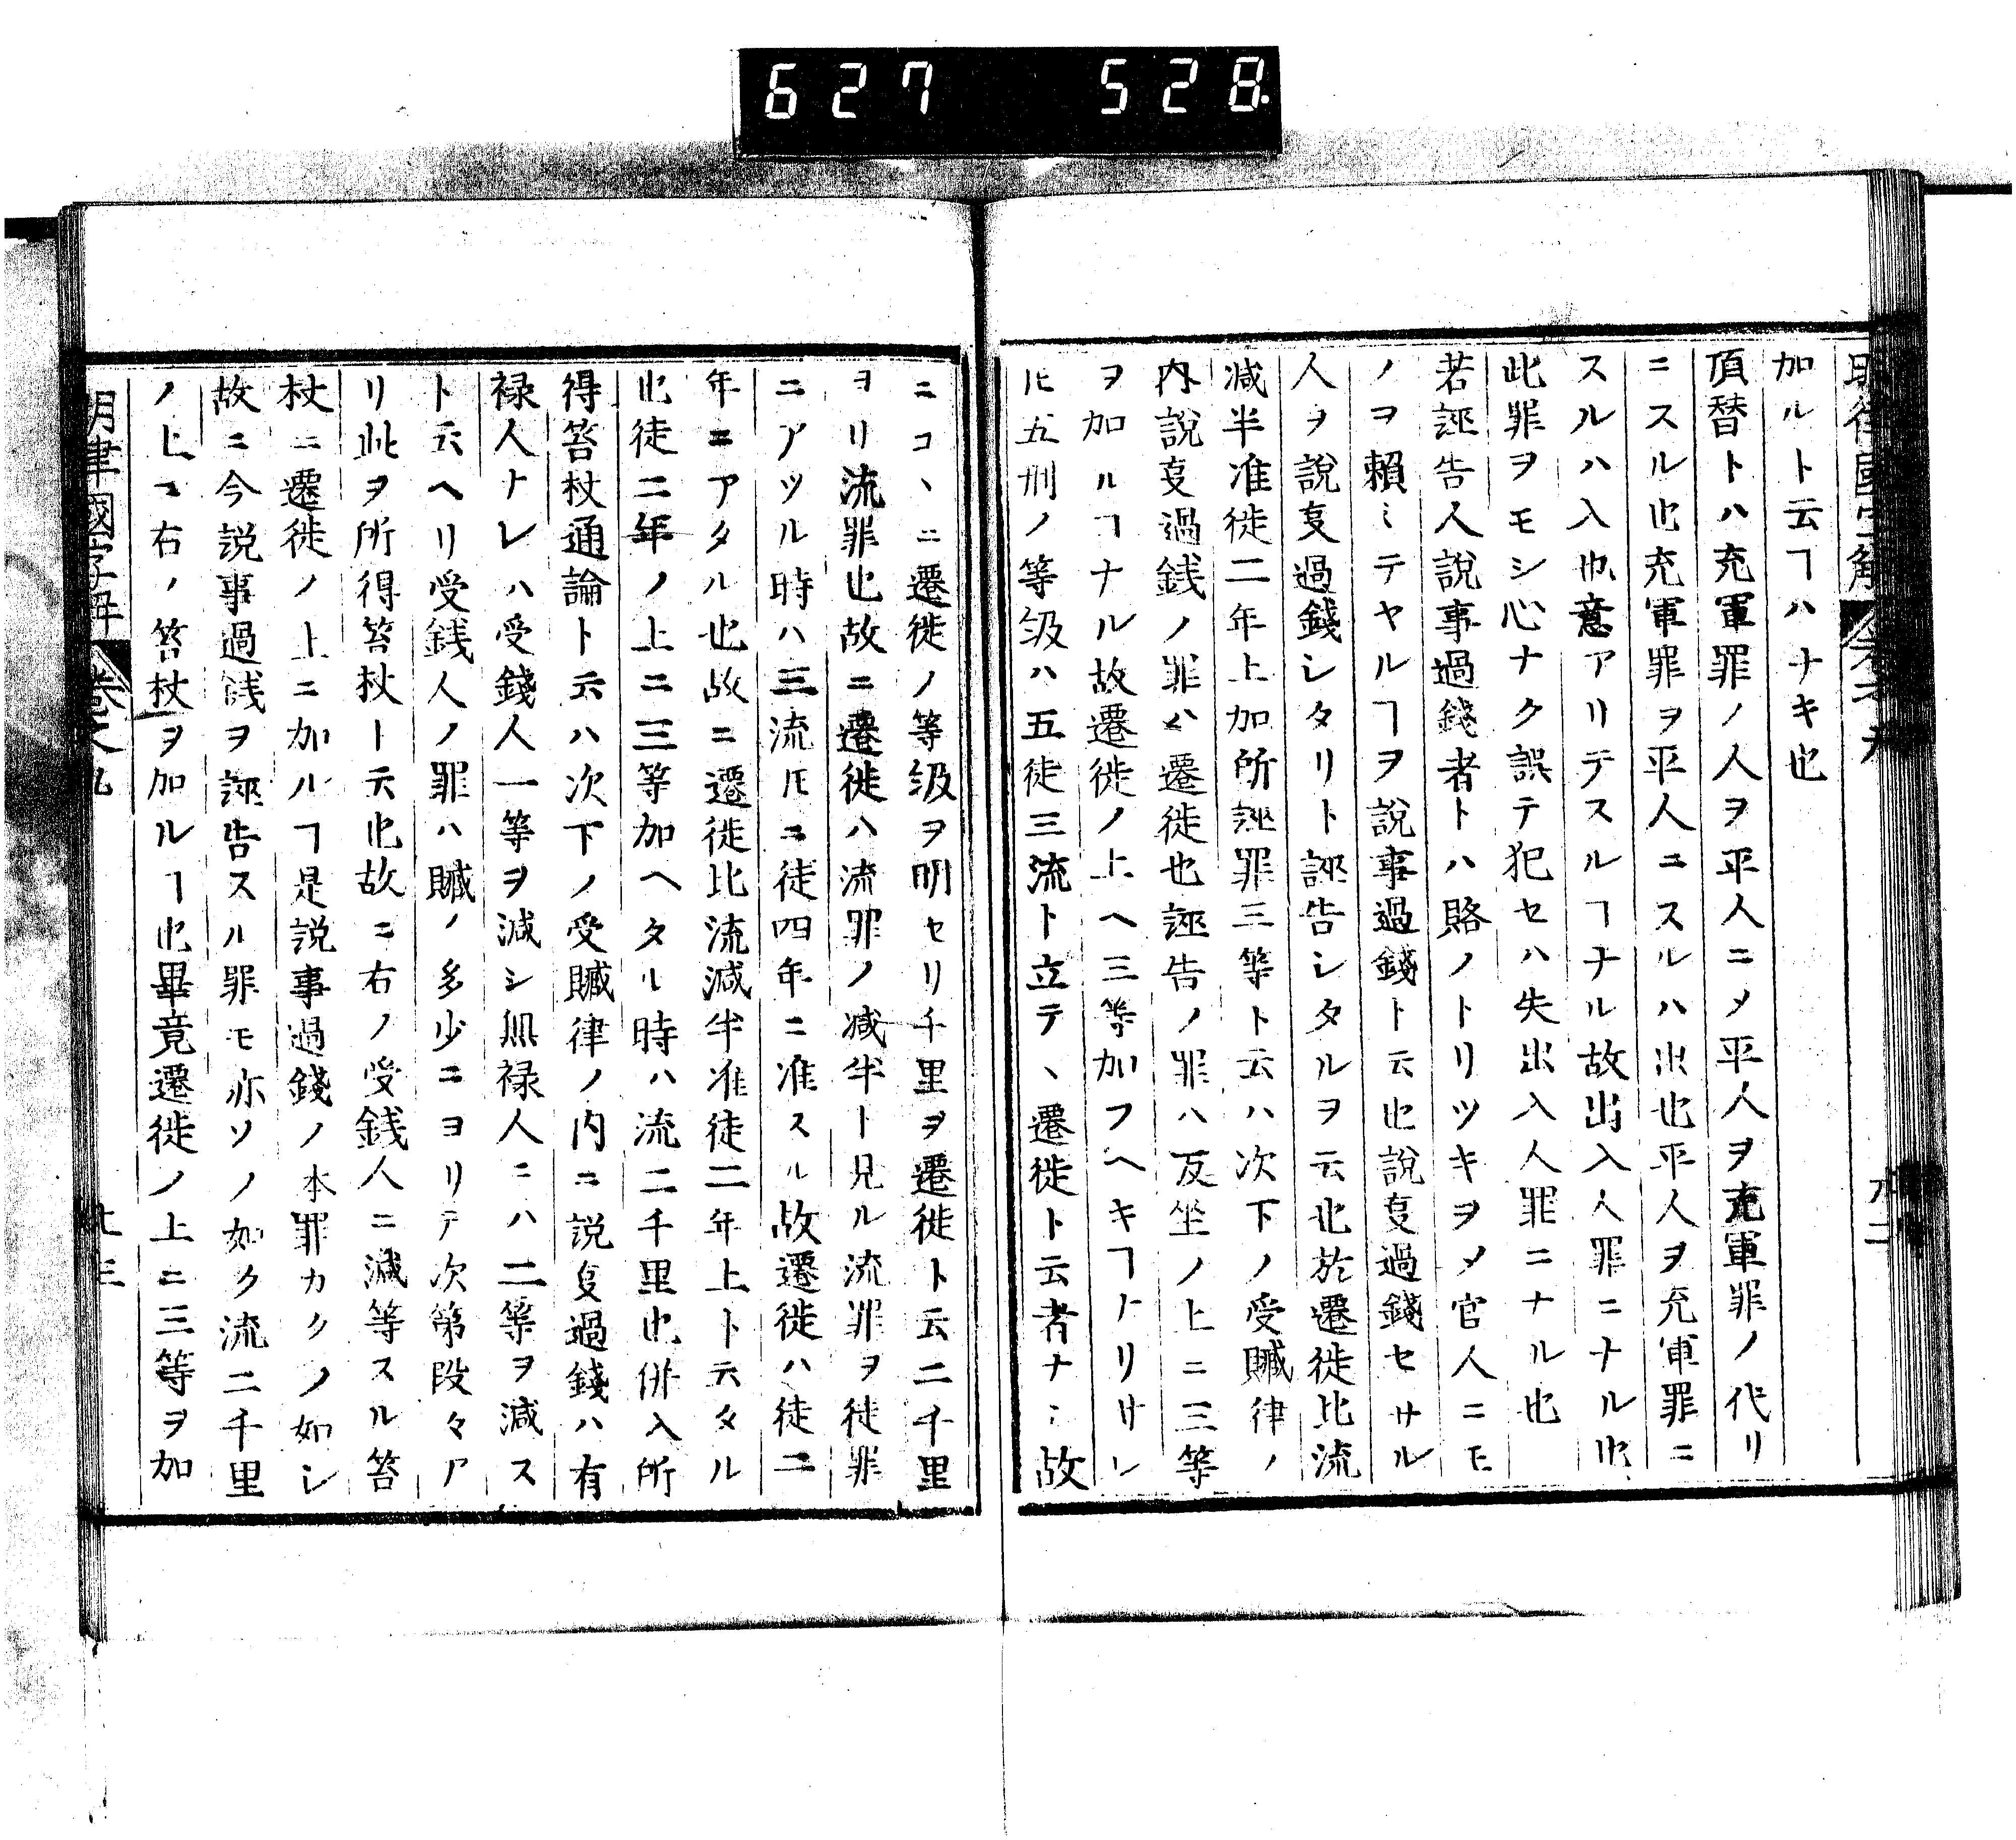 627 528
明律國字解 卷之九
加ルト云ヿハナキ也
頂替トハ充軍罪ノ人ヲ平人ニメ平人ヲ充軍罪ノ代リ
ニスル也充軍罪ヲ平人ニスルハ出也平人ヲ充軍罪ニ
スルハ入也意アリテスルヿナル故出入人罪ニナル也
此罪ヲモシ心ナク誤テ犯セハ失出入人罪ニナル也
若誣告人說事過錢者トハ賂ノトリツキヲメ官人ニモ
ノヲ賴ミテヤルヿヲ說事過錢ト云也說㕝過錢セサル
人ヲ說㕝過錢シタリト誣告シタルヲ云也於遷徙比流
減半准徒二年上加所誣罪三等ト云ハ次下ノ受贓律ノ
内說㕝過銭ノ罪ハ遷徙也誣告ノ罪ハ反坐ノ上ニ三等
ヲ加ルヿナル故遷徙ノ上ヘ三等加フヘキヿナリサレ
𪜈五刑ノ等級ハ五徒三流ト立テヽ遷徙ト云者ナシ故
ニコヽニ遷徙ノ等級ヲ明セリ千里ヲ遷徙ト云二千里
ヨリ流罪也故ニ遷徙ハ流罪ノ減半ト見ル流罪ヲ徒罪
ニアツル時ハ三流𪜈ニ徒四年ニ准スル故遷徙ハ徒二
年ニアタル也故ニ遷徙比流減半准徒二年上ト云タル
也徒二年ノ上ニ三等加ヘタル時ハ流二千里也併入所
得笞杖通論ト云ハ次下ノ受贓律ノ内ニ説㕝過錢ハ有
禄人ナレハ受錢人一等ヲ減シ無禄人ニハ二等ヲ減ス
ト云ヘリ受銭人ノ罪ハ贓ノ多少ニヨリテ次第段々ア
リ此ヲ所得笞杖ト云也故ニ右ノ受銭人ニ減等スル笞
杖ニ遷徙ノ上ニ加ルヿ是説事過錢ノ本罪カクノ如シ
故ニ今説事過銭ヲ誣告スル罪モ亦ソノ如ク流二千里
ノ上ニ右ノ笞杖ヲ加ルヿ也畢竟遷徙ノ上ニ三等ヲ加
明律國字解 卷之九